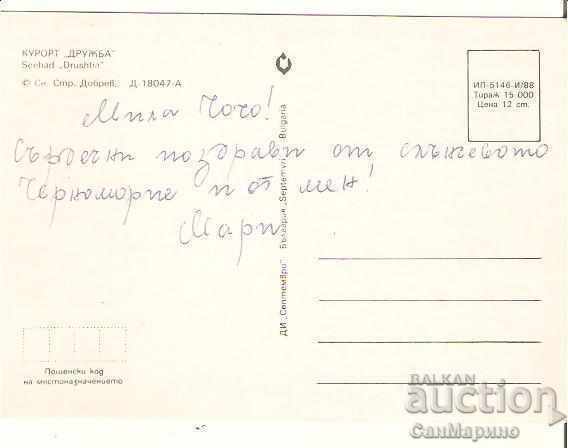 КУРОРТ „ДРУЖБА"
Seebad „Drushba"
© Сн. Стр. Добрев, Д 18047-А
ИП 5146-И/88
Тираж 15 000
Цена 12 ст.
Мила Чочо!
Сърдечни поздрави от слънчевото
Черноморие и от мен!
Мари
ДИ „Септември" България „Septemvri" Bulgaria
Пощенски код
на местоназначението
BALKAN
auction
СанМарино